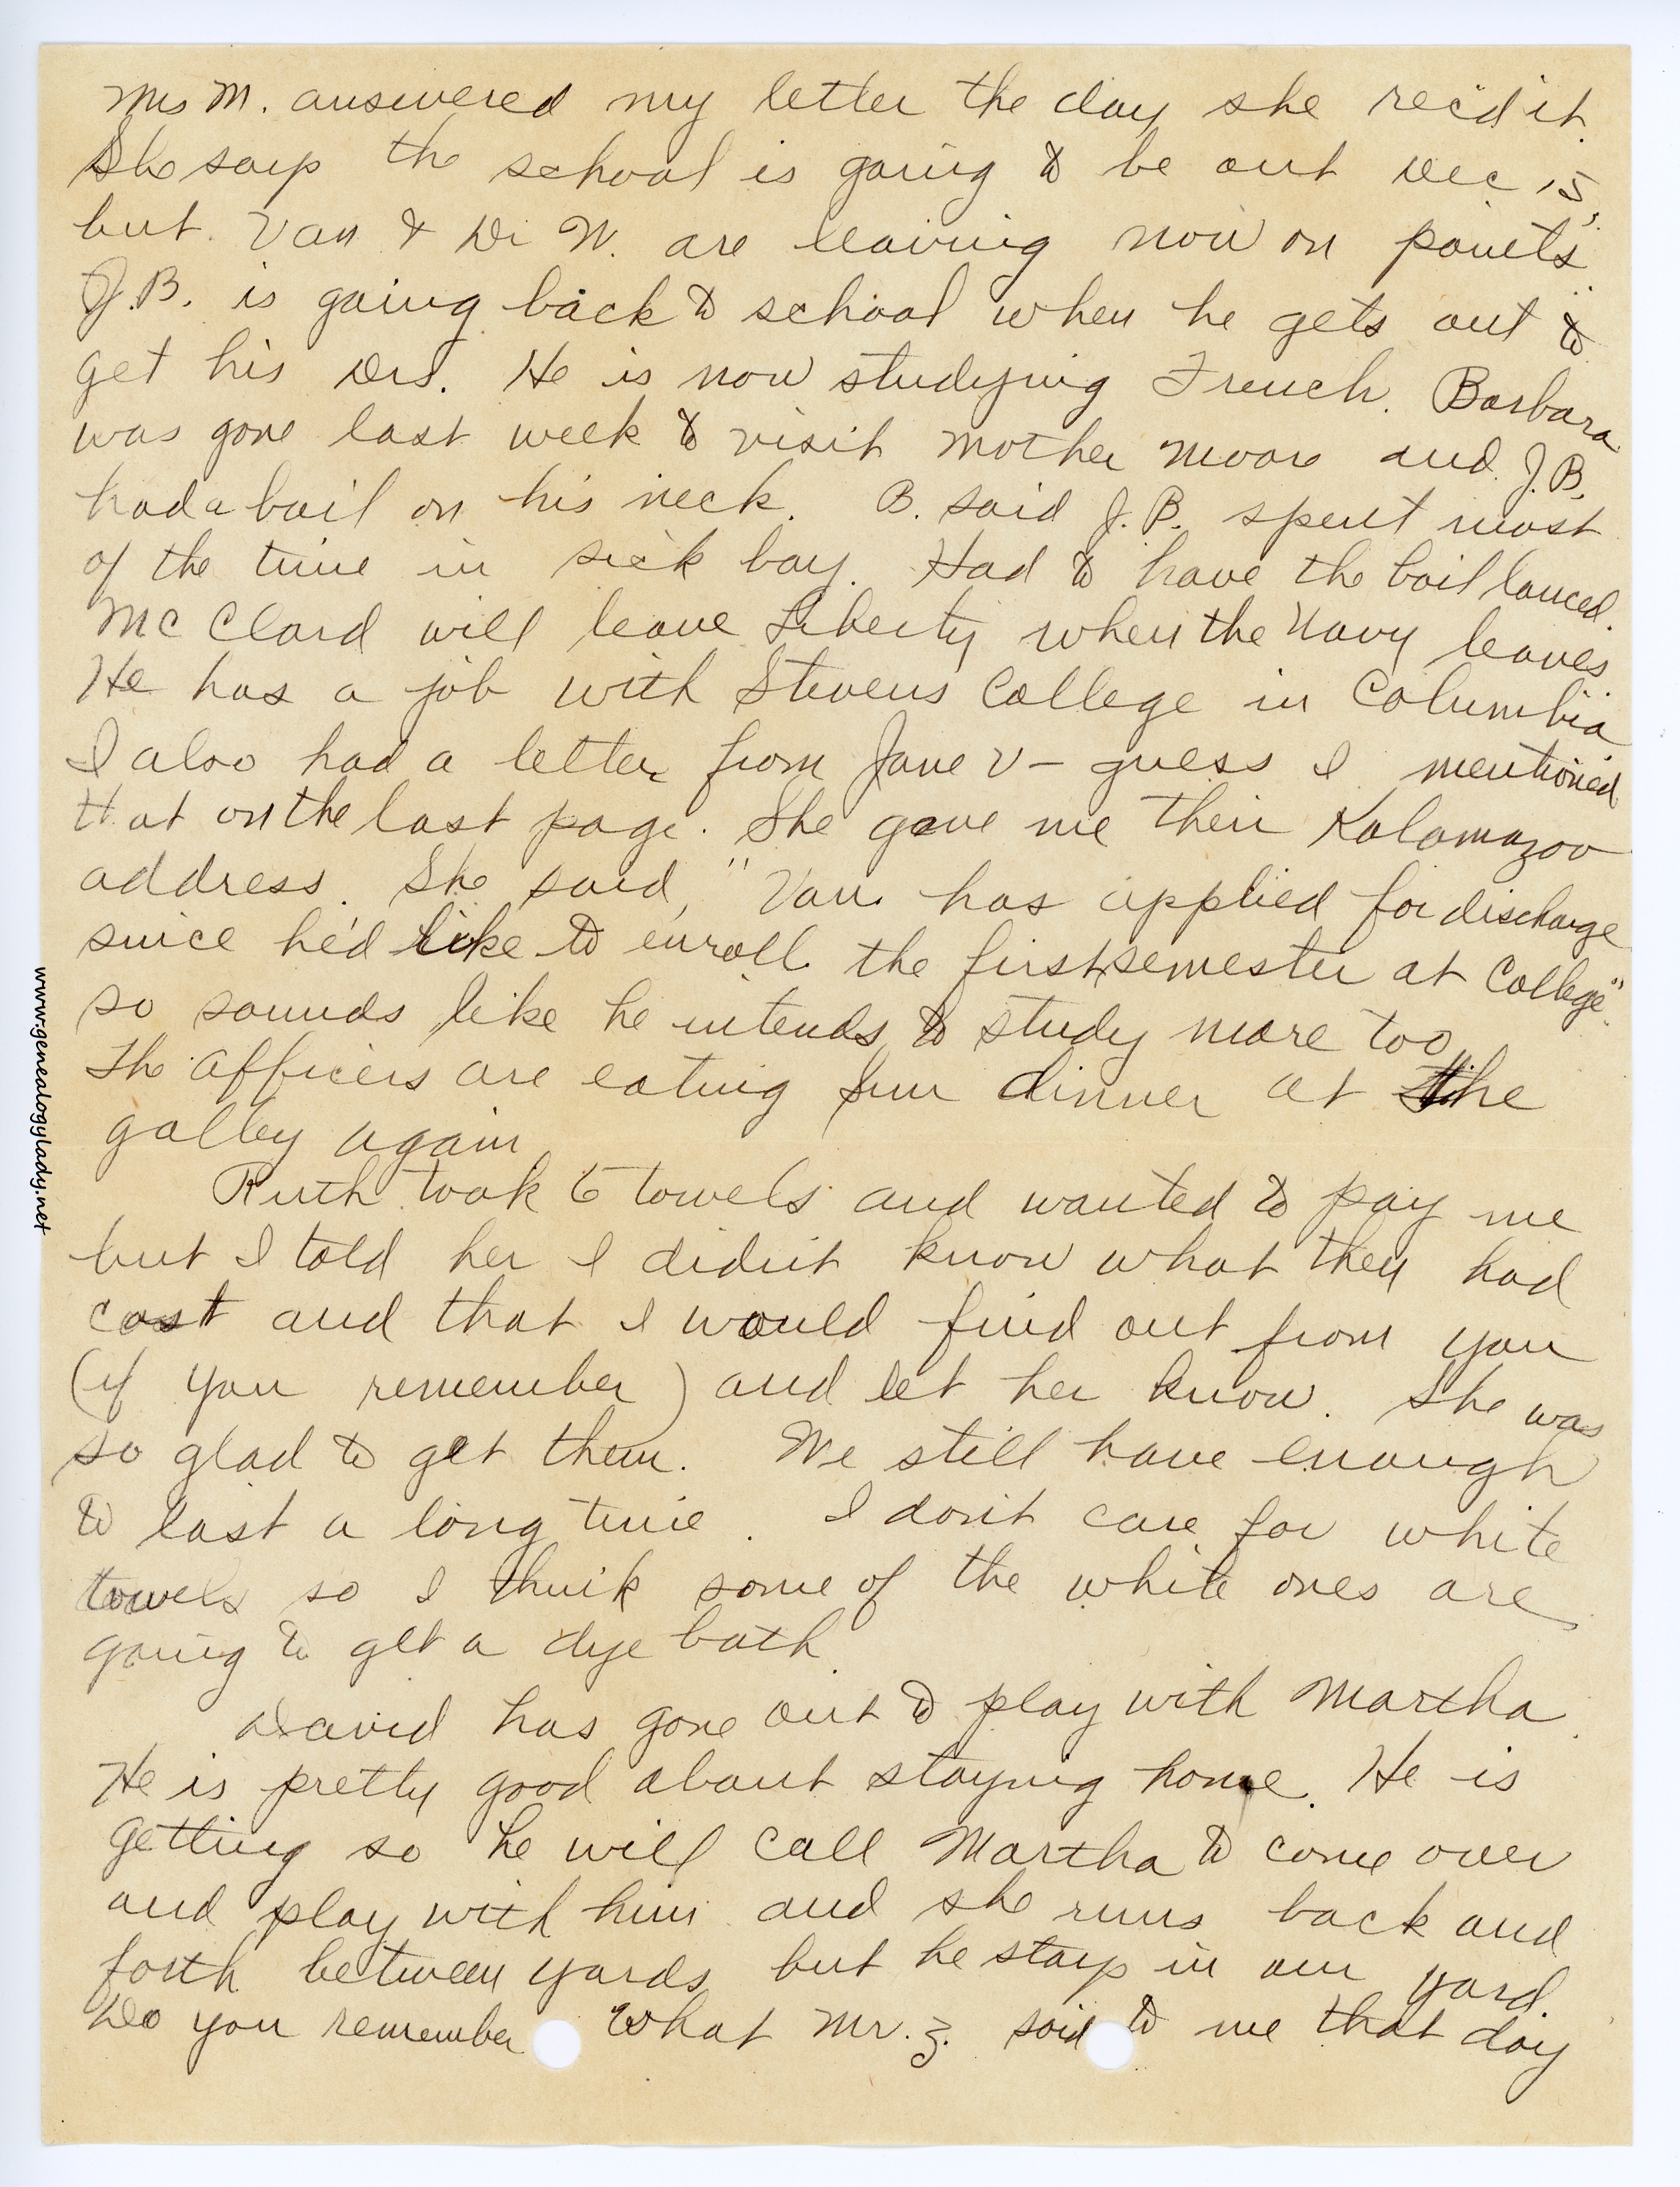 Mrs M. answered my letter the day she rec'd it.
She says the school is going to be out Dec 15,
but Van & Di W. are leaving now on points.
J.B. is going back to school when he gets out to
get his Drs. He is now studying French. Barbara
was gone last week to visit Mother Moore and J.B.
had a boil on his neck. B. said J.B. spent most
of the time in sick bay. Had to have the boil lanced.
McClard will leave Liberty when the Navy leaves
He has a job with Stevens College in Columbia
I also had a letter from Jane V – guess I mentioned
that on the last page. She gave me their Kalamazoo
address. She said, "Van has applied for discharge
since he'd like to enroll the first semester at College".
so sounds like he intends to study more too.
The officers are eating Sun dinner at the
galley again
Ruth took 6 towels and wanted to pay me
but I told her I didn't know what they had
cost and that I would find out from you
(if you remember) and let her know. She was
so glad to get them. We still have enough
to last a long time. I don't care for white
towels so I think some of the white ones are
going to get a dye bath.
David has gone out to play with Martha.
He is pretty good about staying home. He is
getting so he will call Martha to come over
and play with him and she runs back and
forth between yards but he stays in our yard.
Do you remember what Mr. Z. said to me that day
www.genealogylady.net